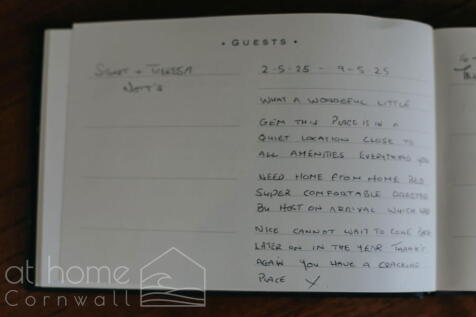 • GUESTS •
2-5-25 - 9-5-25
NOTT'S
WHAT A WONDERFUL LITTLE
GEM THIS PLACE IS IN A
QUIET LOCATION CLOSE TO
ALL AMENITIES EVERYTHING YOU
NEED HOME FROM HOME BED
SUPER COMFORTABLE GREETED
BY HOST ON ARRIVAL WHICH WAS
NICE CANNOT WAIT TO COME BACK
LATER ON IN THE YEAR THANKS
AGAIN YOU HAVE A CRACKING
PLACE X
at home
Cornwall